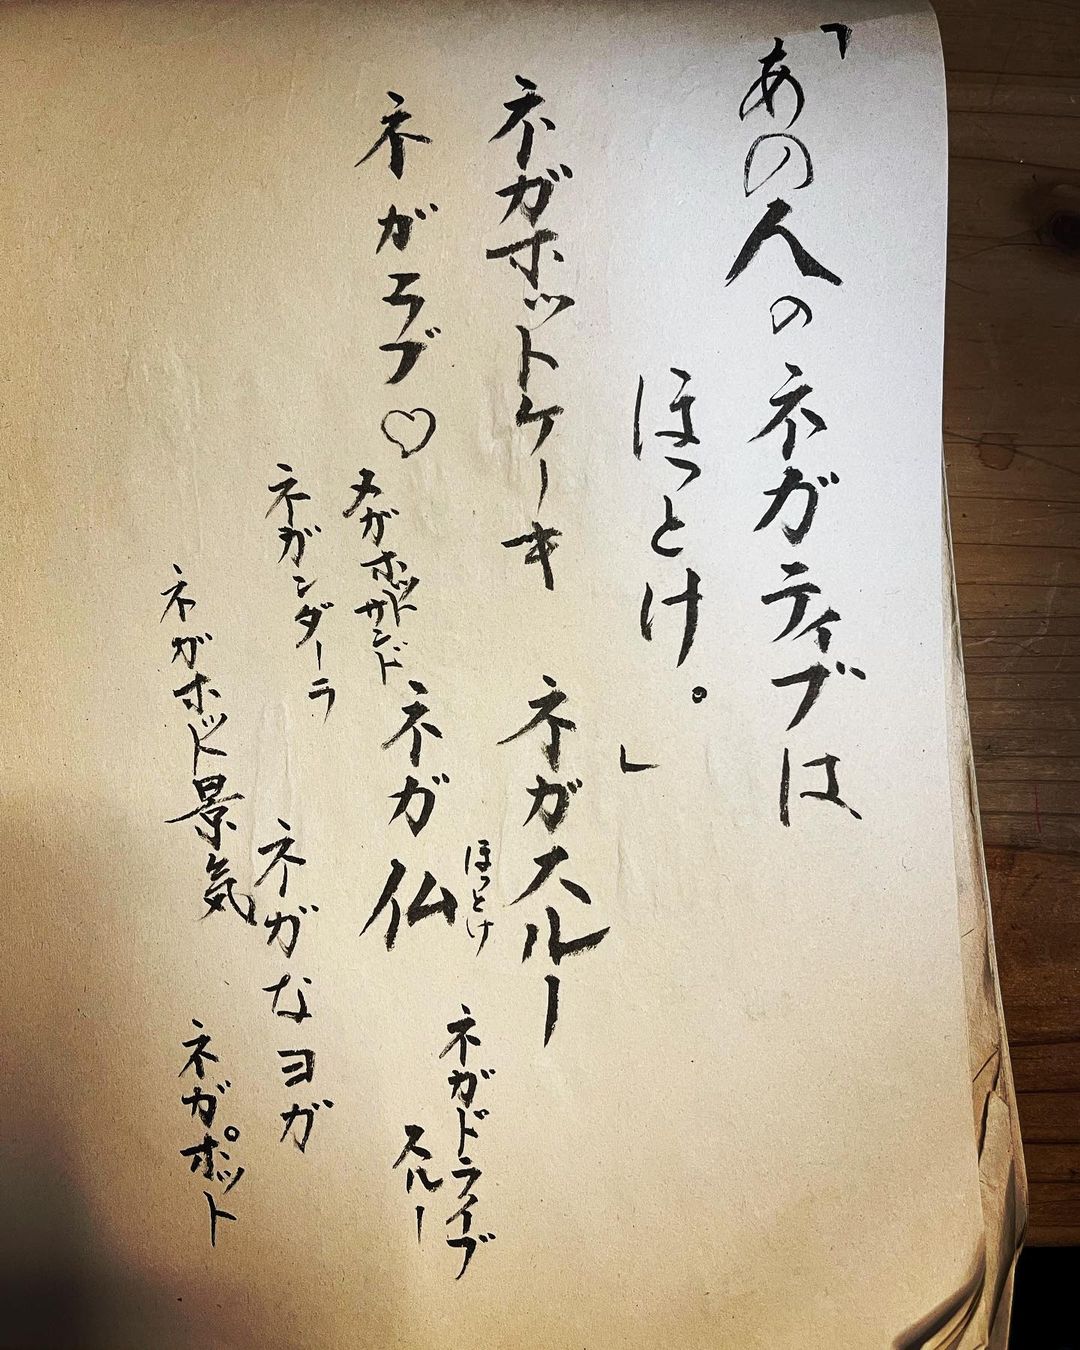 「あの人のネガティブは、
ほっとけ。」
ネガホットケーキ
ネガスルー
ネガラブ♡
ほっとけ
ネガ仏
ネガドライブ
スルー
メガホットサンド
ネガンダーラ
ネガなヨガ
ネガホット景気
ネガポット